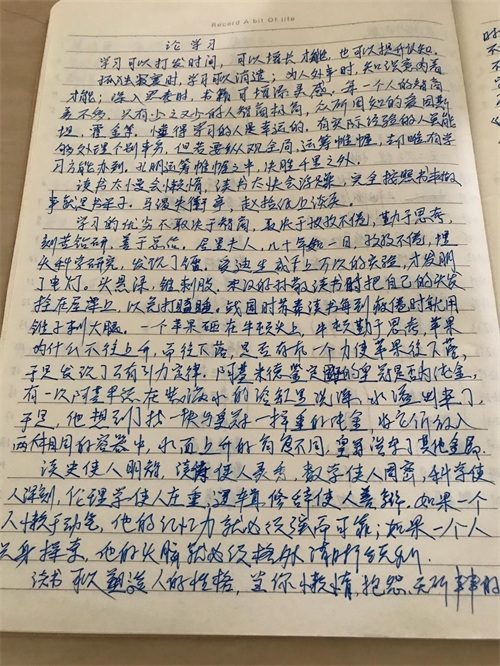 Record A bit Of Life
论学习
学习可以打发时间，可以增长才能，也可以提升认知。
孤独寂寞时，学习可以消遣；为人处事时，知识意味着
才能；深入思考时，书籍可增添灵感。每一个人的智商
差不多，只有少之又少的人智商极高，众所周知的爱因斯
坦，霍金等。懂得学习的人是幸运的，有实际经验的人虽能
够处理个别事务，但若要纵观全局，运筹帷幄，却唯有学
习方能办到。孔明运筹帷幄之中，决胜千里之外。
读书太慢会懒惰，读书太快会浮躁，完全按照书本做
事就是书呆子。马谡失街亭，赵括纸上谈兵。
学习的优劣不取决于智商，取决于孜孜不倦，勤于思考，
刻苦钻研，善于总结。居里夫人，几十年如一日，孜孜不倦，埋
头科学研究，发现了镭。爱迪生成千上万次的实验，才发明
了电灯。头悬梁，锥刺股，末汉的孙敬读书时把自己的头发
拴在屋梁上，以免打瞌睡。战国时苏秦读书每到疲倦时就用
锥子刺大腿。一个苹果砸在牛顿头上，牛顿勤于思考，苹果
为什么不往上升，而往下落，是否存在一个力使苹果往下落，
于是发现了万有引力定律。阿基米德鉴定国王的皇冠是否为纯金，
有一次阿基米德在装满水的浴缸里洗澡，水溢出来了，
于是，他想到了找一块与皇冠一样重的纯金，将它们放入
两个相同的容器中，水面上升的高度不同，皇冠混杂了其他金属。
读史使人明智，读诗使人灵秀，数学使人周密，科学使
人深刻，伦理学使人庄重，逻辑修辞使人善辩。如果一个
人懒于动笔，他的记忆力就必须强而可靠；如果一个人
他的头脑就必须格外
读书可以塑造人的性格，当你懒惰，抱怨，无所事事的